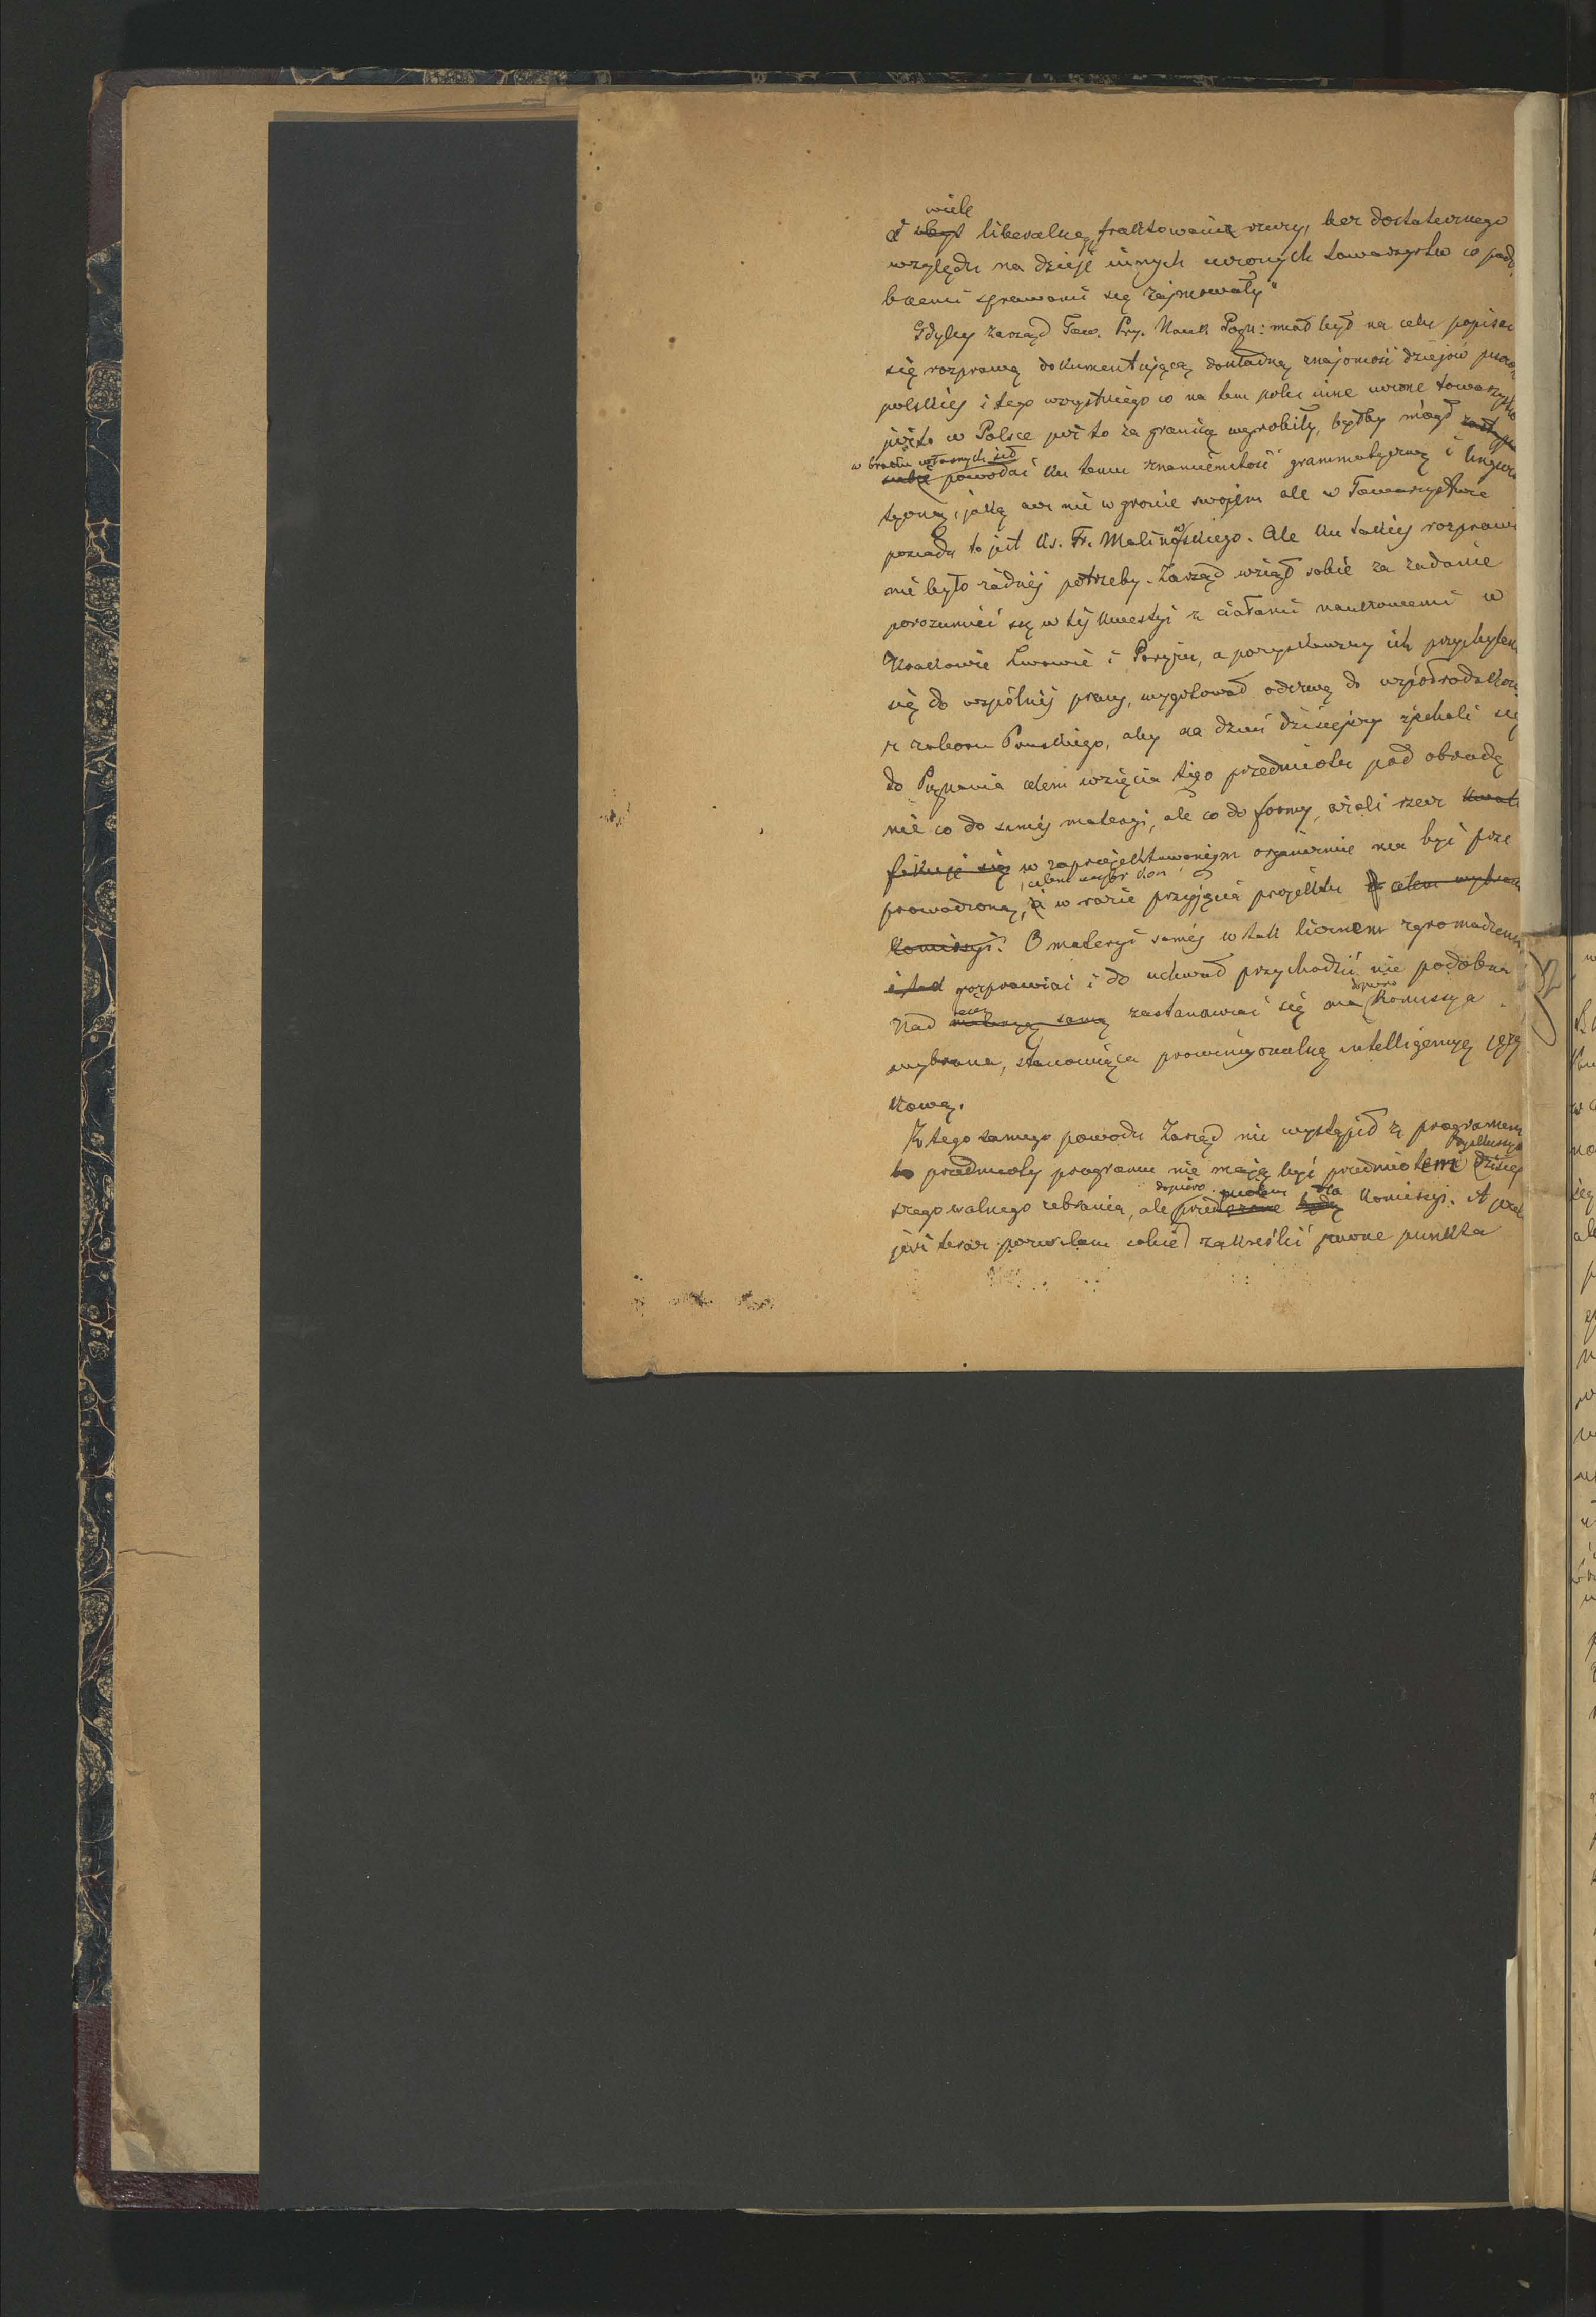 wiele
i zbyt liberalnę traktowanie rzeczy, bez dostatecznego
względu na dzieje innych uczonych towarzystw co podo
bnemi sprawami się zajmowały"
Gdyby zarząd Tow. Prz. Nauk Pozn: miał był na celu popisać
się rozprawą dokumentującą dokładną znajomość dziejów
polskiej i tego wszystkiego co na tem polu inne uczone towarzystwa
już to w Polsce już to za granicą wyrobiły, byłby mógł
w braku własnych sił
siebie powołać ku temu znamienitość grammatyczną i lingwi
styczną, jaką acz nie w gronie swojem ale w Towarzystwie
posiada to jest Ks. Fr. Malinowskiego. Ale ku takiej rozprawie
nie było żadnej potrzeby. Zarząd wziął sobie za zadanie
porozumieć się w tej kwestyi z ciałami naukowemi w
Krakowie Lwowie i Paryżu, a pozyskawszy ich przychylen
się do wspólnej pracy, wygotował odezwę do współrodaków
z zaboru Pruskiego, aby na dzień dzisiejszy zjechali się
do Poznania celem wzięcia tego przedmiotu pod obradę
nie co do samej materyi, ale co do formy, ażali rzecz kwali
fikuje się w zaprojektowanym organizmie ma być prze
, celem wybr Kom
prowadzoną, i w razie przyjęcia projektu celem wybrania
Komissyi. O materyi samej w tak licznem zgromadzeniu
rozprawiać i do uchwał przychodzić nie podobna
rzeczą dopiero
Nad materyą samą zastanawiać się ma Komissya
wybrana, stanowiąca prowincyonalną intelligencyę języ
kową.
Z tego samego powodu Zarząd nie wystąpił z programem
bo przedmioty programu nie mają być przedmiotem dzisiej
dopiero dla
szego walnego zebrania, ale Komissyi. A
jeśli teraz pozwalam sobie zakreślić pewne punkta